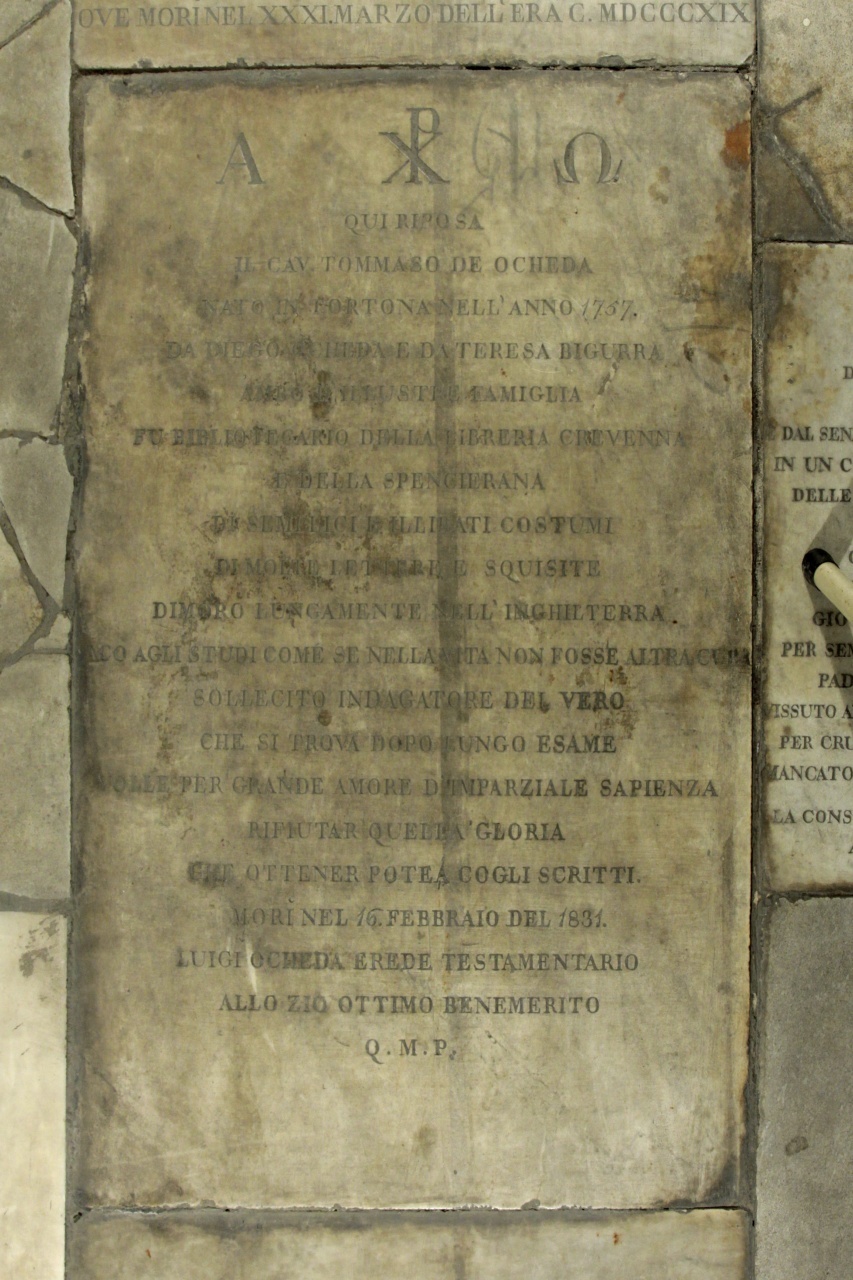 OVE MORÌ NEL XXXI. MARZO DELL'ERA C. MDCCCXIX
Α ☧ Ω
QUI RIPOSA
IL CAV. TOMMASO DE OCHEDA
NATO IN TORTONA NELL'ANNO 1757.
DA DIEGO OCHEDA E DA TERESA BIGURRA
ILLUSTRE FAMIGLIA
FU BIBLIOTECARIO DELLA LIBRERIA CREVENNA
E DELLA SPENCERANA
DI SEMPLICI E ILLIBATI COSTUMI
DI MOLTE LETTERE E SQUISITE
DIMORÒ LUNGAMENTE NELL'INGHILTERRA.
AGLI STUDI COME SE NELLA VITA NON FOSSE ALTRA CURA
SOLLECITO INDAGATORE DEL VERO
CHE SI TROVA DOPO LUNGO ESAME
VOLLE PER GRANDE AMORE D'IMPARZIALE SAPIENZA
RIFIUTAR QUELLA GLORIA
CHE OTTENER POTEA COGLI SCRITTI.
MORÌ NEL 16. FEBBRAIO DEL 1831.
LUIGI OCHEDA EREDE TESTAMENTARIO
ALLO ZIO OTTIMO BENEMERITO
Q. M. P.
DAL SEN
IN UN C
DELLE
GIO
PER SEM
PAD
ISSUTO A
PER CRU
MANCATO
LA CONS